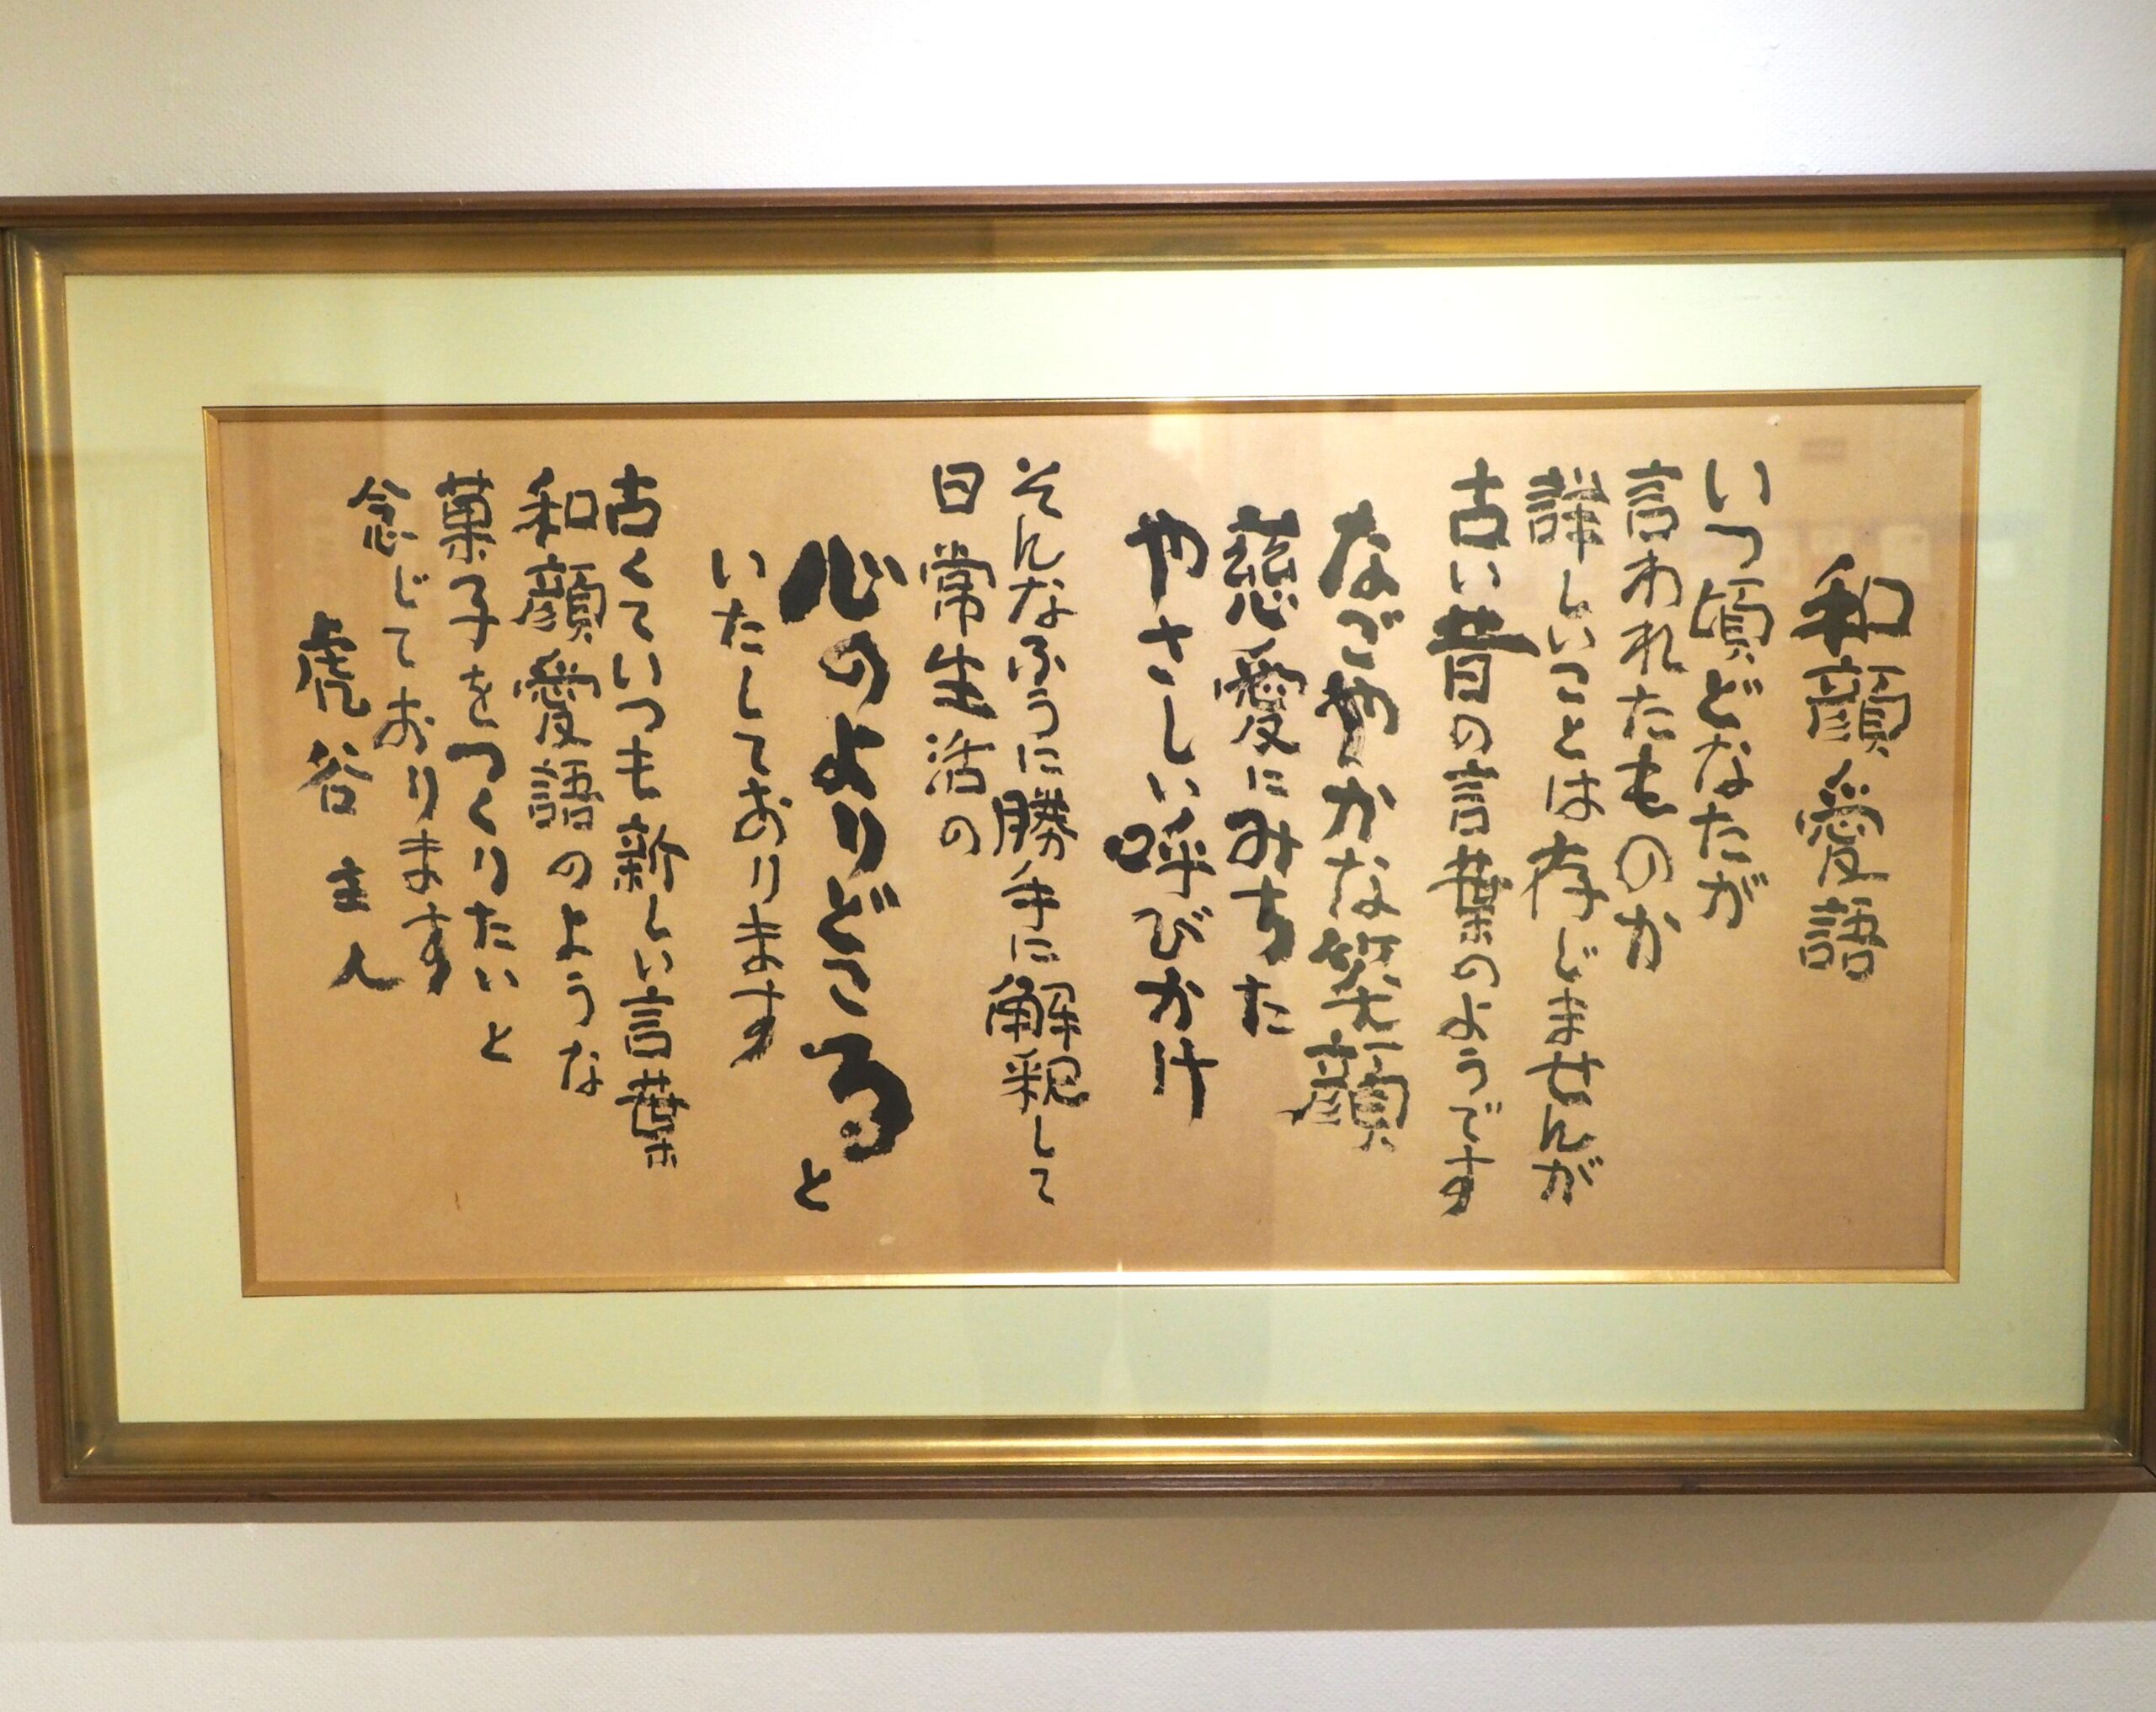 和顔愛語
いつ頃どなたが
言われたものか
詳しいことは存じませんが
古い昔の言葉のようです
なごやかな笑顔
慈愛にみちた
やさしい呼びかけ
そんなふうに勝手に解釈して
日常生活の
心のよりどころと
いたしております
古くていつも新しい言葉
和顔愛語のような
菓子をつくりたいと
念じております
虎谷主人